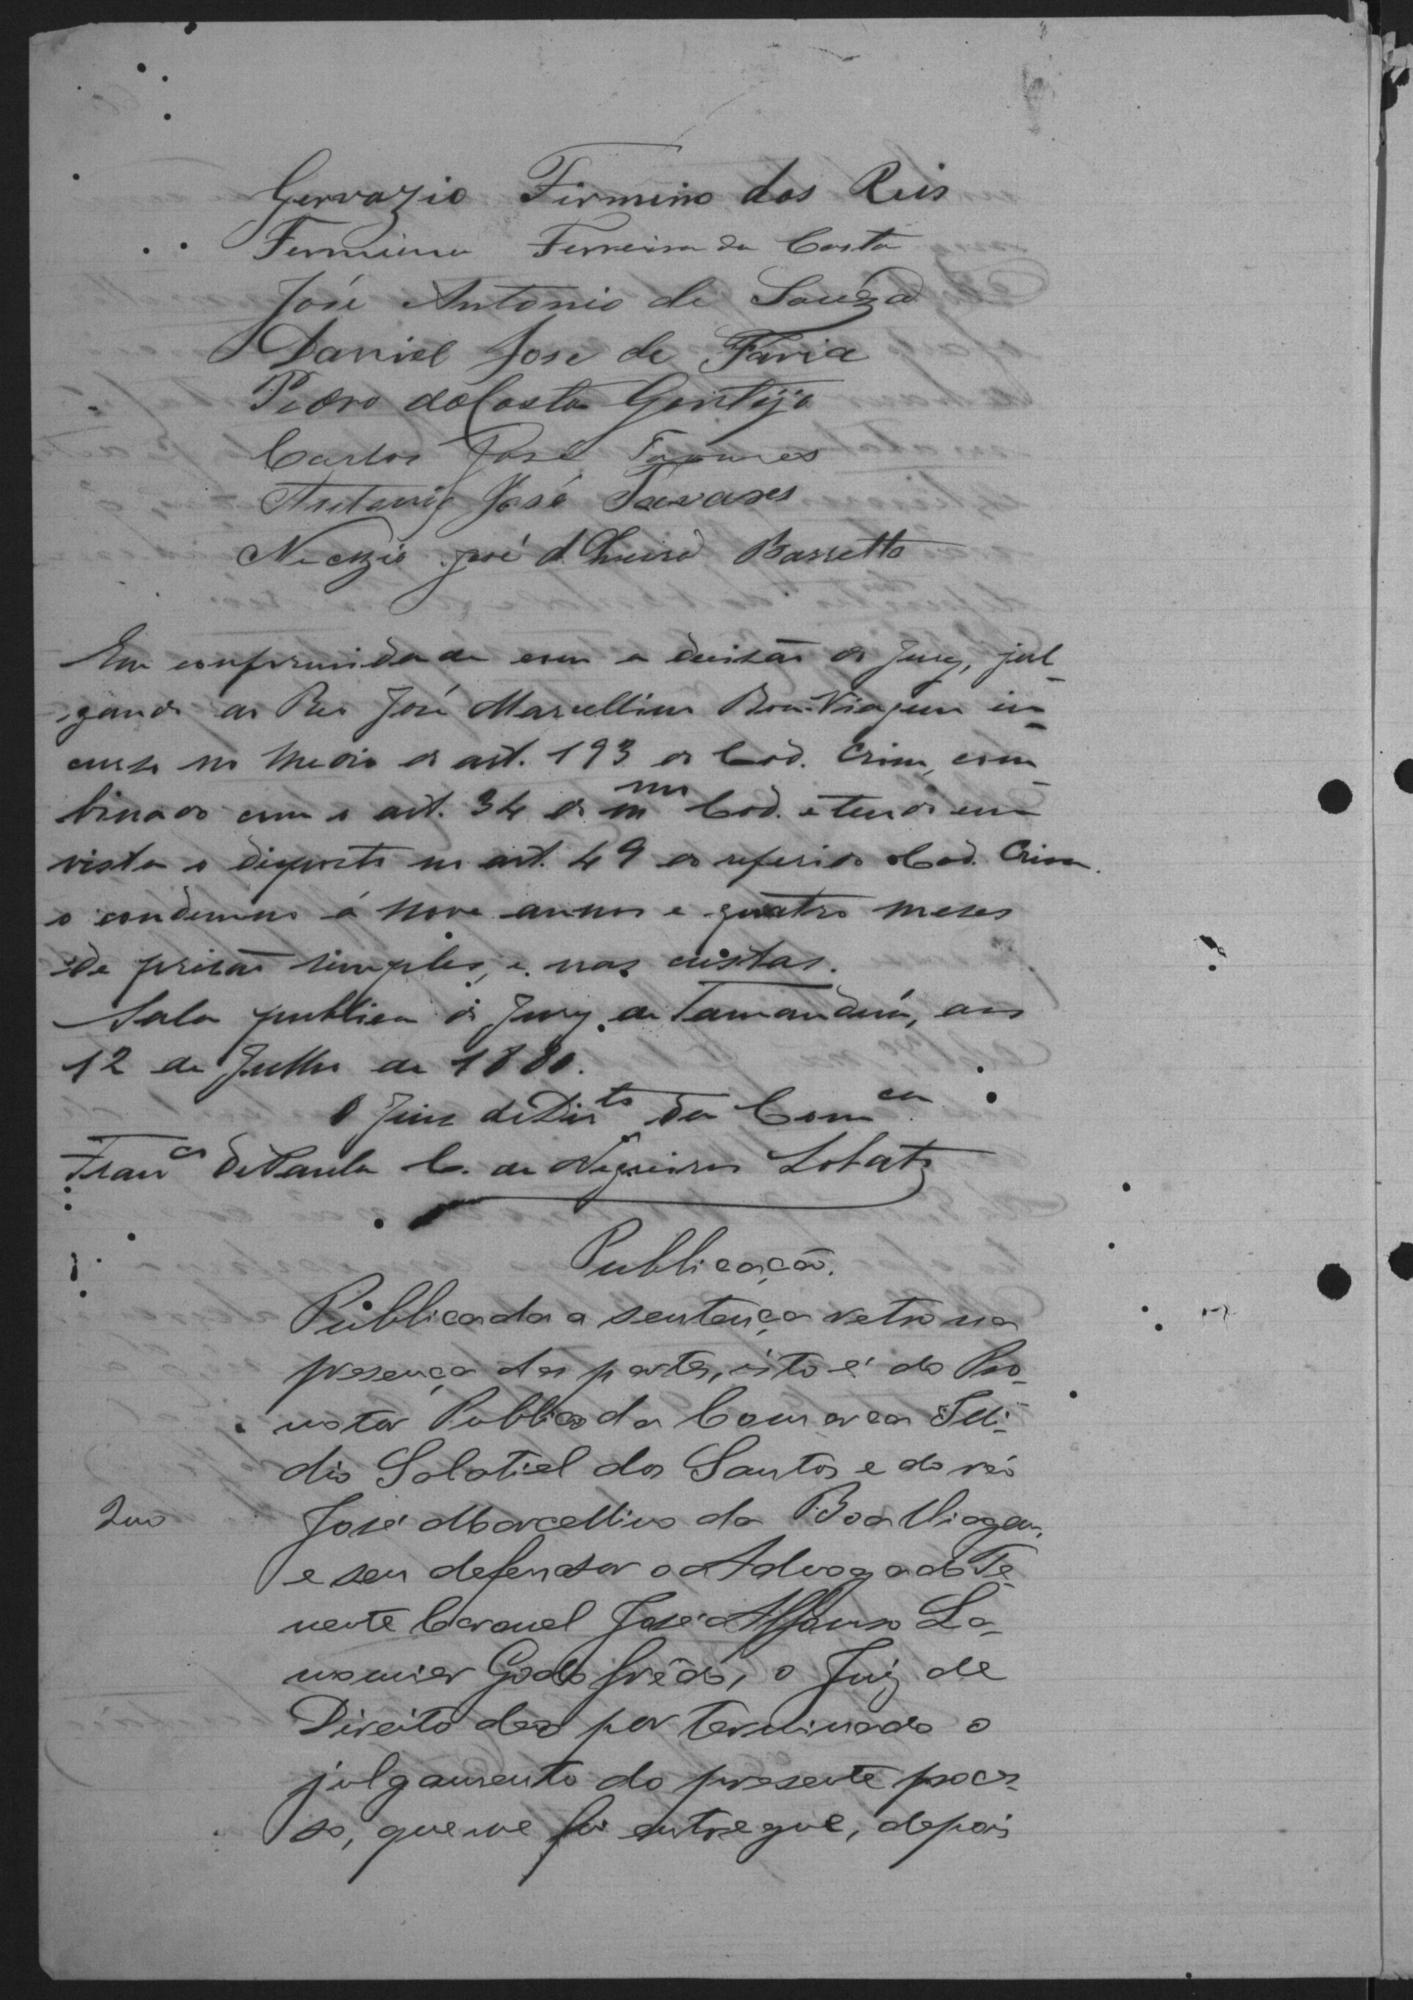 Gervazio Firmino dos Reis
Ferreira da Costa
José Antonio de Souza
Daniel Jose de Faria
Pedro da Costa Gontijo
Carlos José Tavares
Antonio José Tavares
José Barretto
Em conformidade com a decisão do Jury, jul-
gando ao Reo José Marcellino Boa Viagem in-
curso no medio do art. 193 do Cod. Crim, com-
binado com o art. 34 do mmo Cod. e tendo em
vista o disposto no art. 49 do referido Cod. Crim.
o condemno á nove annos e quatro meses
de prisão simples, e nas custas.
Sala publica do Jury de Tamanduá, aos
12 de Julho de 1880.
O Juiz de Dirto da Comca
Franco de Paula C. de Negreiros Lobato
Publicação.
Publicada a sentença retro na
presença das partes, isto é do Pro-
motor Publico da Comarca
dio Salatiel dos Santos e do réo
José Marcellino da Boa Viagem,
e seu defensor o Advogado Te-
nente Coronel José Affonso La-
mounier Godofrêdo, o Juiz de
Direito deo por terminado o
julgamento do presente proces-
so, que me foi entregue, depois